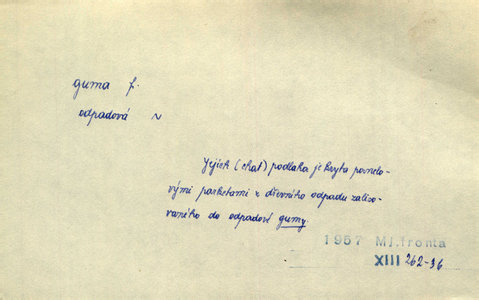 guma f.
odpadová ~
Jejich (chat) podlaha je kryta panelo-
vými parketami z dřevného odpadu zaliso-
vaného do odpadové gumy.
1957 Ml.fronta
XIII 262-36